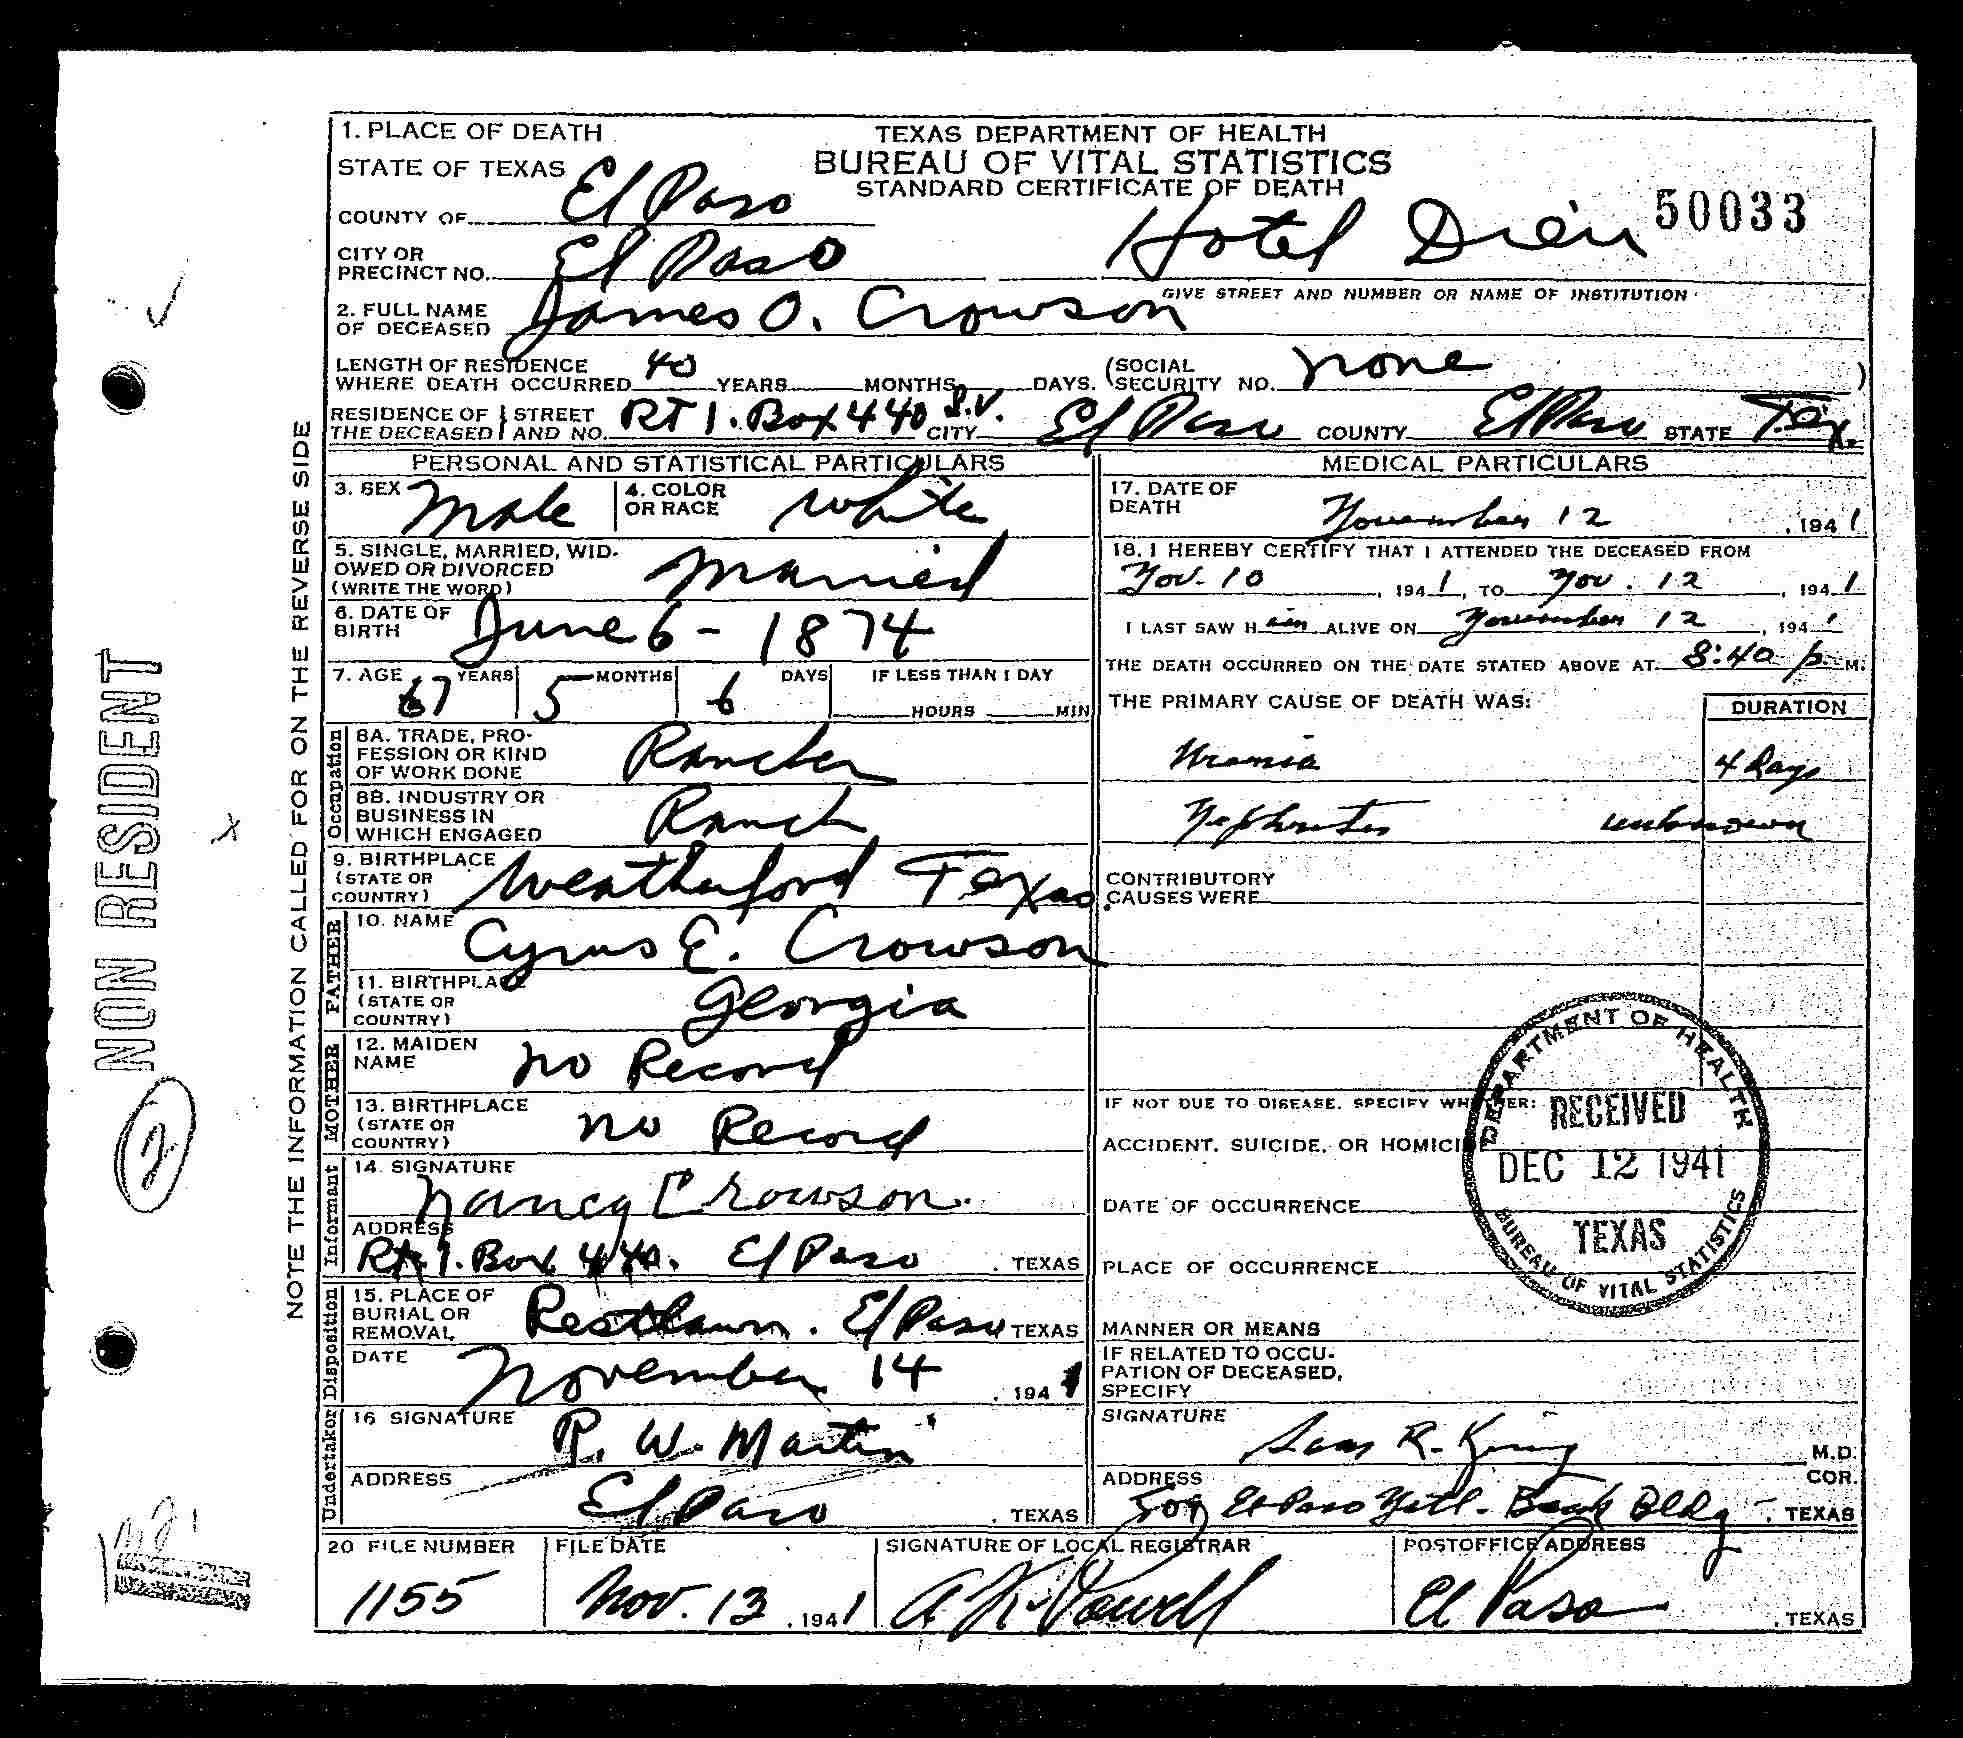 1. PLACE OF DEATH
TEXAS DEPARTMENT OF HEALTH
BUREAU OF VITAL STATISTICS
STANDARD CERTIFICATE OF DEATH
50033
STATE OF TEXAS
COUNTY OF El Paso
CITY OR PRECINCT NO. El Paso
Hotel Dieu
GIVE STREET AND NUMBER OR NAME OF INSTITUTION
2. FULL NAME OF DECEASED James O. Crowson
LENGTH OF RESIDENCE WHERE DEATH OCCURRED 40 YEARS MONTHS DAYS. (SOCIAL SECURITY NO. none )
RESIDENCE OF THE DECEASED STREET AND NO. RT 1. Box 440 S.V. CITY El Paso COUNTY El Paso STATE Tex.
PERSONAL AND STATISTICAL PARTICULARS
3. SEX Male
4. COLOR OR RACE White
5. SINGLE, MARRIED, WIDOWED OR DIVORCED (WRITE THE WORD) Married
6. DATE OF BIRTH June 6 - 1874
7. AGE 67 YEARS 5 MONTHS 6 DAYS IF LESS THAN 1 DAY HOURS MIN
Occupation
8A. TRADE, PROFESSION OR KIND OF WORK DONE Rancher
8B. INDUSTRY OR BUSINESS IN WHICH ENGAGED Ranch
9. BIRTHPLACE (STATE OR COUNTRY) Weatherford Texas.
FATHER
10. NAME Cyrus E. Crowson
11. BIRTHPLACE (STATE OR COUNTRY) Georgia
MOTHER
12. MAIDEN NAME No Record
13. BIRTHPLACE (STATE OR COUNTRY) No Record
Informant
14. SIGNATURE Nancy Crowson.
ADDRESS Rt. 1. Box 440. El Paso, TEXAS
Disposition
15. PLACE OF BURIAL OR REMOVAL Restlawn. El Paso TEXAS
DATE November 14, 1941
Undertaker
16 SIGNATURE R. W. Martin
ADDRESS El Paso, TEXAS
MEDICAL PARTICULARS
17. DATE OF DEATH November 12, 1941
18. I HEREBY CERTIFY THAT I ATTENDED THE DECEASED FROM
Nov. 10, 1941, TO Nov. 12, 1941
I LAST SAW Him ALIVE ON November 12, 1941
THE DEATH OCCURRED ON THE DATE STATED ABOVE AT 8:40 p. M.
THE PRIMARY CAUSE OF DEATH WAS: DURATION
Uremia 4 Days
Nephritis unknown
CONTRIBUTORY CAUSES WERE
IF NOT DUE TO DISEASE, SPECIFY WHETHER:
ACCIDENT, SUICIDE, OR HOMICIDE
DATE OF OCCURRENCE
PLACE OF OCCURRENCE
MANNER OR MEANS
IF RELATED TO OCCUPATION OF DECEASED, SPECIFY
SIGNATURE Sam R. King M.D. COR.
ADDRESS 509 El Paso Natl. Bank Bldg., TEXAS
DEPARTMENT OF HEALTH
RECEIVED
DEC 12 1941
TEXAS
BUREAU OF VITAL STATISTICS
20 FILE NUMBER 1155
FILE DATE Nov. 13, 1941
SIGNATURE OF LOCAL REGISTRAR A K Powell
POSTOFFICE ADDRESS El Paso, TEXAS
NOTE THE INFORMATION CALLED FOR ON THE REVERSE SIDE
NON RESIDENT
2